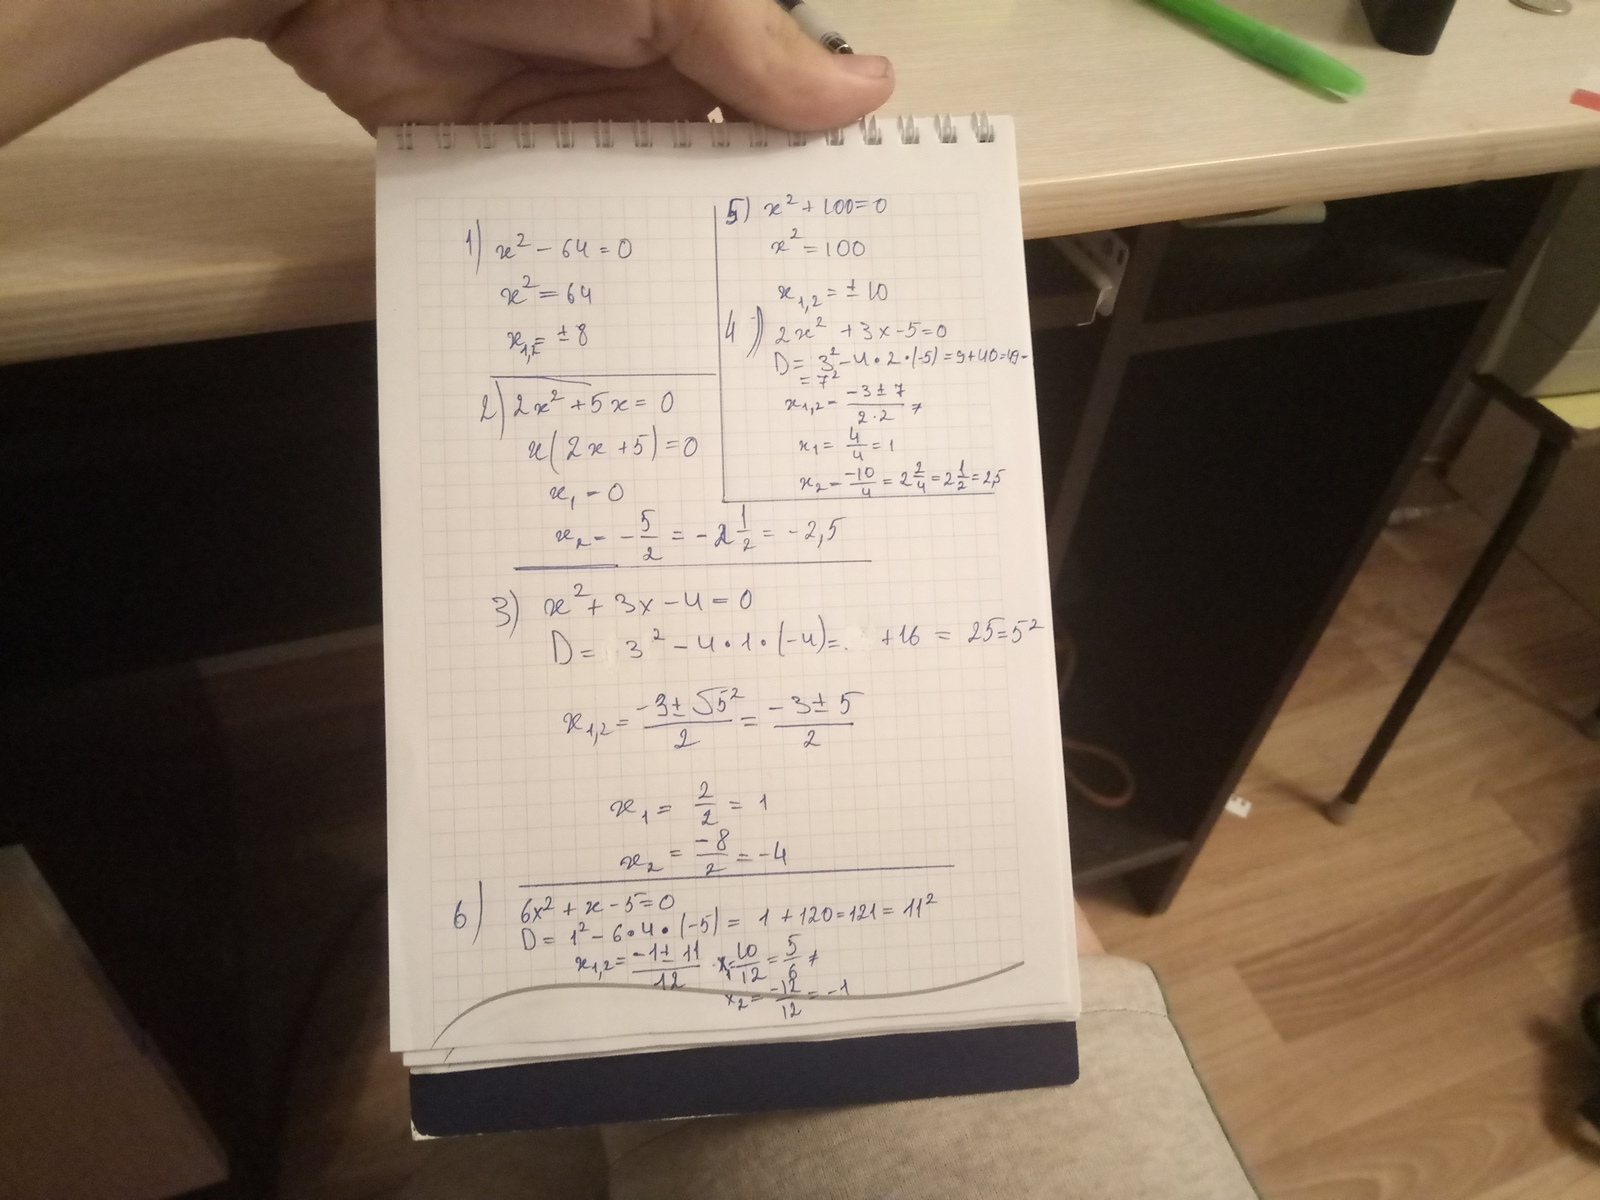 1) x² - 64 = 0
x² = 64
x₁,₂ = ± 8
2) 2x² + 5x = 0
x(2x + 5) = 0
x₁ = 0
x₂ = - 5/2 = -2 1/2 = -2,5
5) x² + 100 = 0
x² = 100
x₁,₂ = ± 10
4) 2x² + 3x - 5 = 0
D = 3² - 4 • 2 • (-5) = 9 + 40 = 49 =
= 7²
x₁,₂ = (-3 ± 7)/(2 · 2)
x₁ = 4/4 = 1
x₂ = -10/4 = 2 2/4 = 2 1/2 = 2,5
3) x² + 3x - 4 = 0
D = 3² - 4 • 1 • (-4) = + 16 = 25 = 5²
x₁,₂ = (-3 ± √5²)/2 = (-3 ± 5)/2
x₁ = 2/2 = 1
x₂ = -8/2 = -4
6) 6x² + x - 5 = 0
D = 1² - 6 • 4 • (-5) = 1 + 120 = 121 = 11²
x₁,₂ = (-1 ± 11)/12 x₁ = 10/12 = 5/6
x₂ = -12/12 = -1